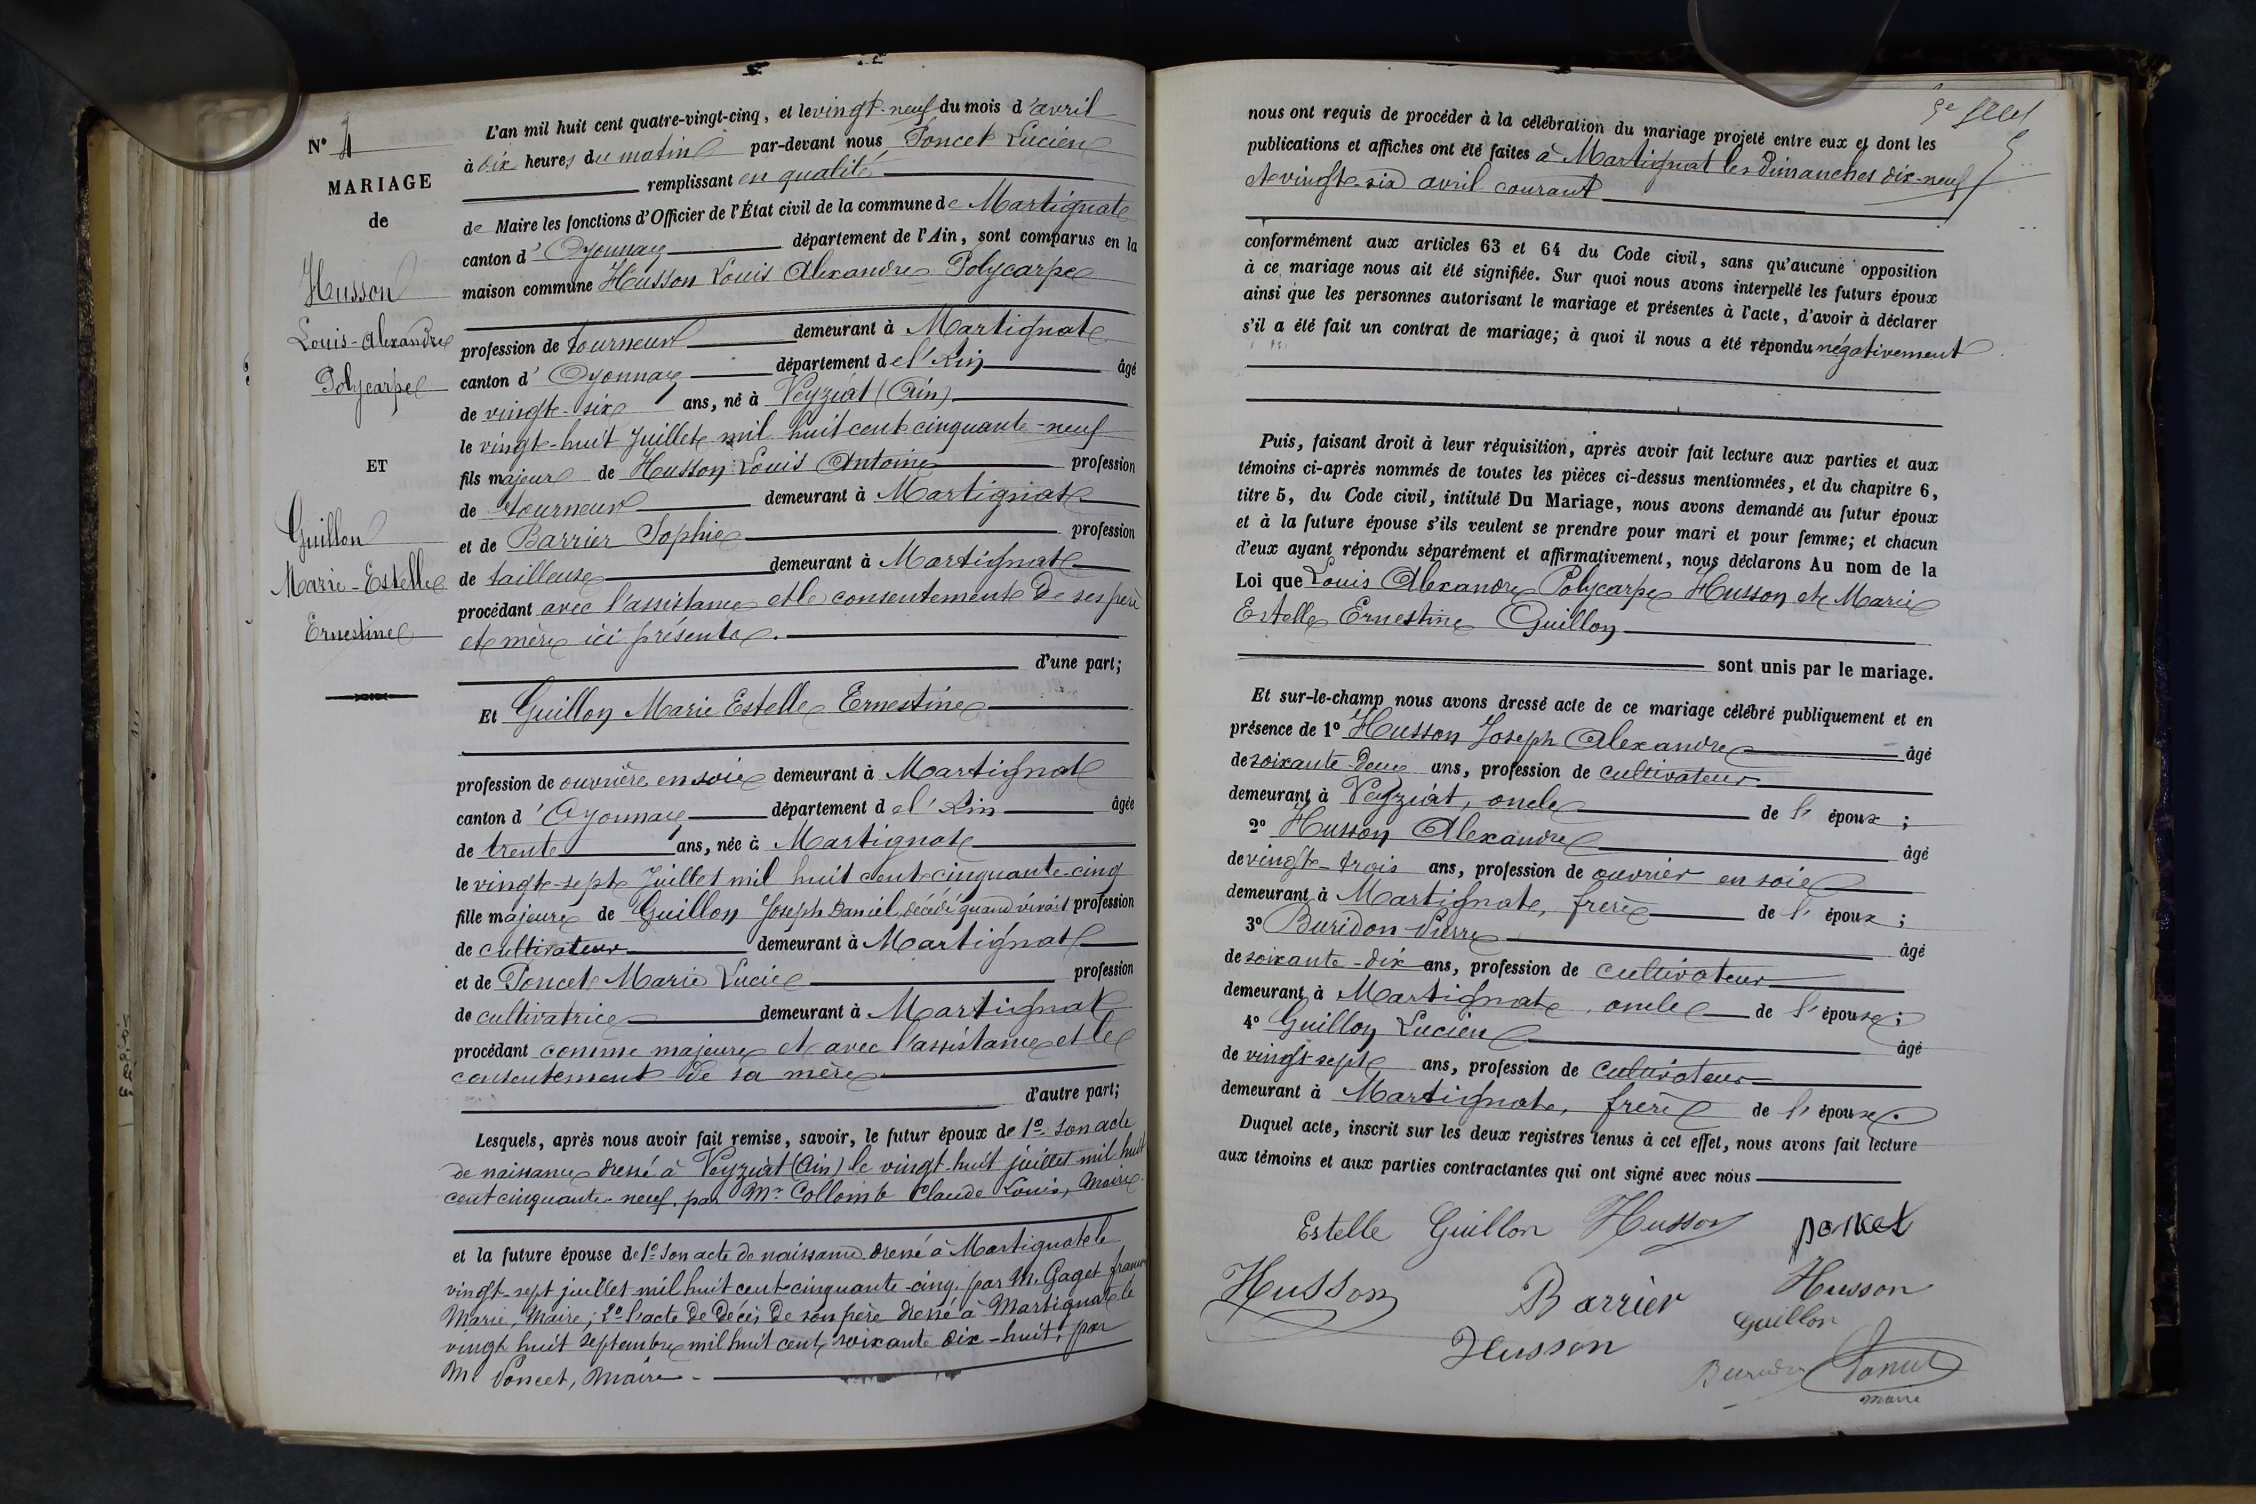 N° 4
MARIAGE
de
Husson
Louis-Alexandre
Polycarpe
ET
Guillon
Marie-Estelle
Ernestine
L'an mil huit cent quatre-vingt-cinq, et le vingt-neuf du mois d'avril
à dix heures du matin par-devant nous Poncet Lucien
remplissant en qualité
de Maire les fonctions d'Officier de l'État civil de la commune de Martignat
canton d'Oyonnax département de l'Ain, sont comparus en la
maison commune Husson Louis Alexandre Polycarpe
profession de tourneur demeurant à Martignat
canton d'Oyonnax département de l'Ain âgé
de vingt-six ans, né à Veyziat (Ain)
le vingt-huit Juillet mil huit cent cinquante-neuf
fils majeur de Husson Louis Antoine profession
de tourneur demeurant à Martignat
et de Barrier Sophie profession
de tailleuse demeurant à Martignat
procédant avec l'assistance et le consentement de ses père
et mère ici présents.
d'une part;
Et Guillon Marie Estelle Ernestine
profession de ouvrière en soie demeurant à Martignat
canton d'Oyonnax département de l'Ain âgée
de trente ans, née à Martignat
le vingt-sept Juillet mil huit cent cinquante-cinq
fille majeure de Guillon Joseph Daniel, décédé quand vivait profession
de cultivateur demeurant à Martignat
et de Poncet Marie Lucie profession
de cultivatrice demeurant à Martignat
procédant comme majeure et avec l'assistance et le
consentement de sa mère
d'autre part;
Lesquels, après nous avoir fait remise, savoir, le futur époux de 1° son acte
de naissance dressé à Veyziat (Ain) le vingt-huit juillet mil huit
cent cinquante-neuf, par Mr Collomb Claude Louis, Maire
et la future épouse de 1° son acte de naissance dressé à Martignat le
vingt-sept juillet mil huit cent cinquante-cinq, par M. Gaget
Marie, Maire; 2° l'acte de décès de son père dressé à Martignat le
vingt huit septembre mil huit cent soixante dix-huit, par
M. Poncet, Maire
nous ont requis de procéder à la célébration du mariage projeté entre eux et dont les
publications et affiches ont été faites à Martignat les Dimanches dix-neuf
et vingt-six avril courant
conformément aux articles 63 et 64 du Code civil, sans qu'aucune opposition
à ce mariage nous ait été signifiée. Sur quoi nous avons interpellé les futurs époux
ainsi que les personnes autorisant le mariage et présentes à l'acte, d'avoir à déclarer
s'il a été fait un contrat de mariage; à quoi il nous a été répondu négativement
Puis, faisant droit à leur réquisition, après avoir fait lecture aux parties et aux
témoins ci-après nommés de toutes les pièces ci-dessus mentionnées, et du chapitre 6,
titre 5, du Code civil, intitulé Du Mariage, nous avons demandé au futur époux
et à la future épouse s'ils veulent se prendre pour mari et pour femme; et chacun
d'eux ayant répondu séparément et affirmativement, nous déclarons Au nom de la
Loi que Louis Alexandre Polycarpe Husson et Marie
Estelle Ernestine Guillon
sont unis par le mariage.
Et sur-le-champ nous avons dressé acte de ce mariage célébré publiquement et en
présence de 1° Husson Joseph Alexandre âgé
de soixante-deux ans, profession de cultivateur
demeurant à Veyziat, oncle de l'époux;
2° Husson Alexandre âgé
de vingt-trois ans, profession de ouvrier en soie
demeurant à Martignat, frère de l'époux;
3° Buridon Pierre âgé
de soixante-dix ans, profession de cultivateur
demeurant à Martignat, oncle de l'épouse;
4° Guillon Lucien âgé
de vingt sept ans, profession de cultivateur
demeurant à Martignat, frère de l'épouse.
Duquel acte, inscrit sur les deux registres tenus à cet effet, nous avons fait lecture
aux témoins et aux parties contractantes qui ont signé avec nous
Estelle Guillon Husson poncet
Husson Barrier Husson
Guillon
Husson
Buridon Poncet
maire